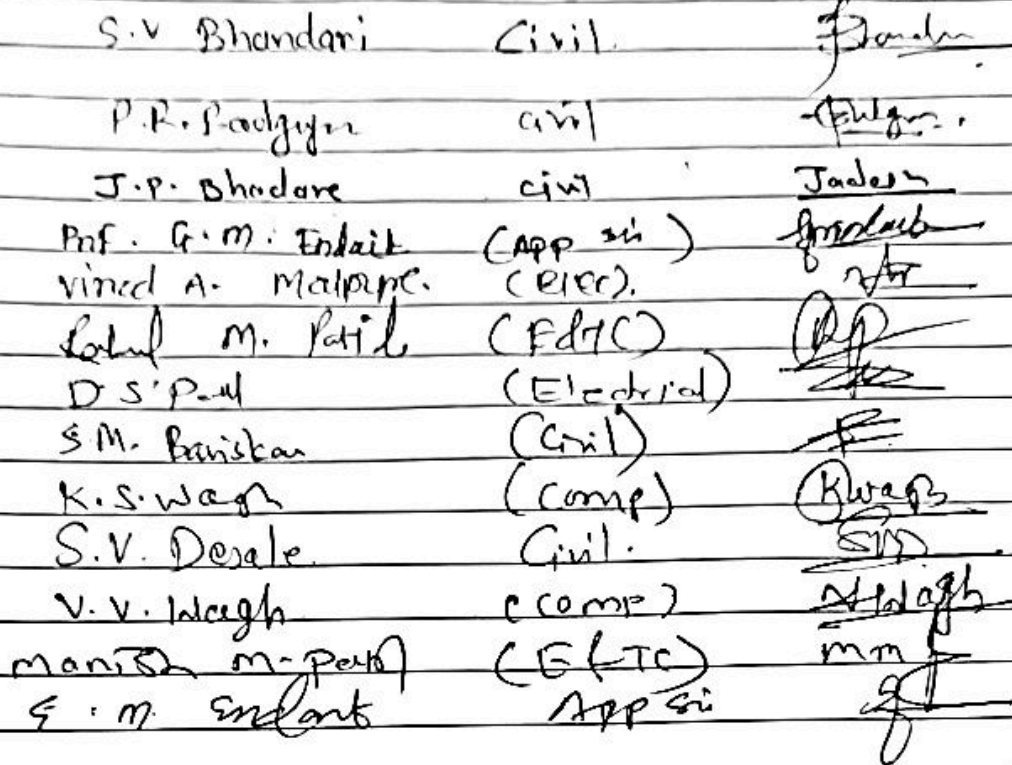 S.V Bhandari Civil
P.R. civil
J.P. Bhadare civil
Prof. G.M. Endait (App sci)
Vinod A. (Elec).
M. Patil (E&TC)
D S Patil (Electrial)
S M. Baviskar (Civil)
K.S. Wagh (Comp) KWagh
S.V. Desale Civil.
V.V. Wagh (comp) Wagh
Manish M. Patil (E&TC) mm
G.M. Endait App sci